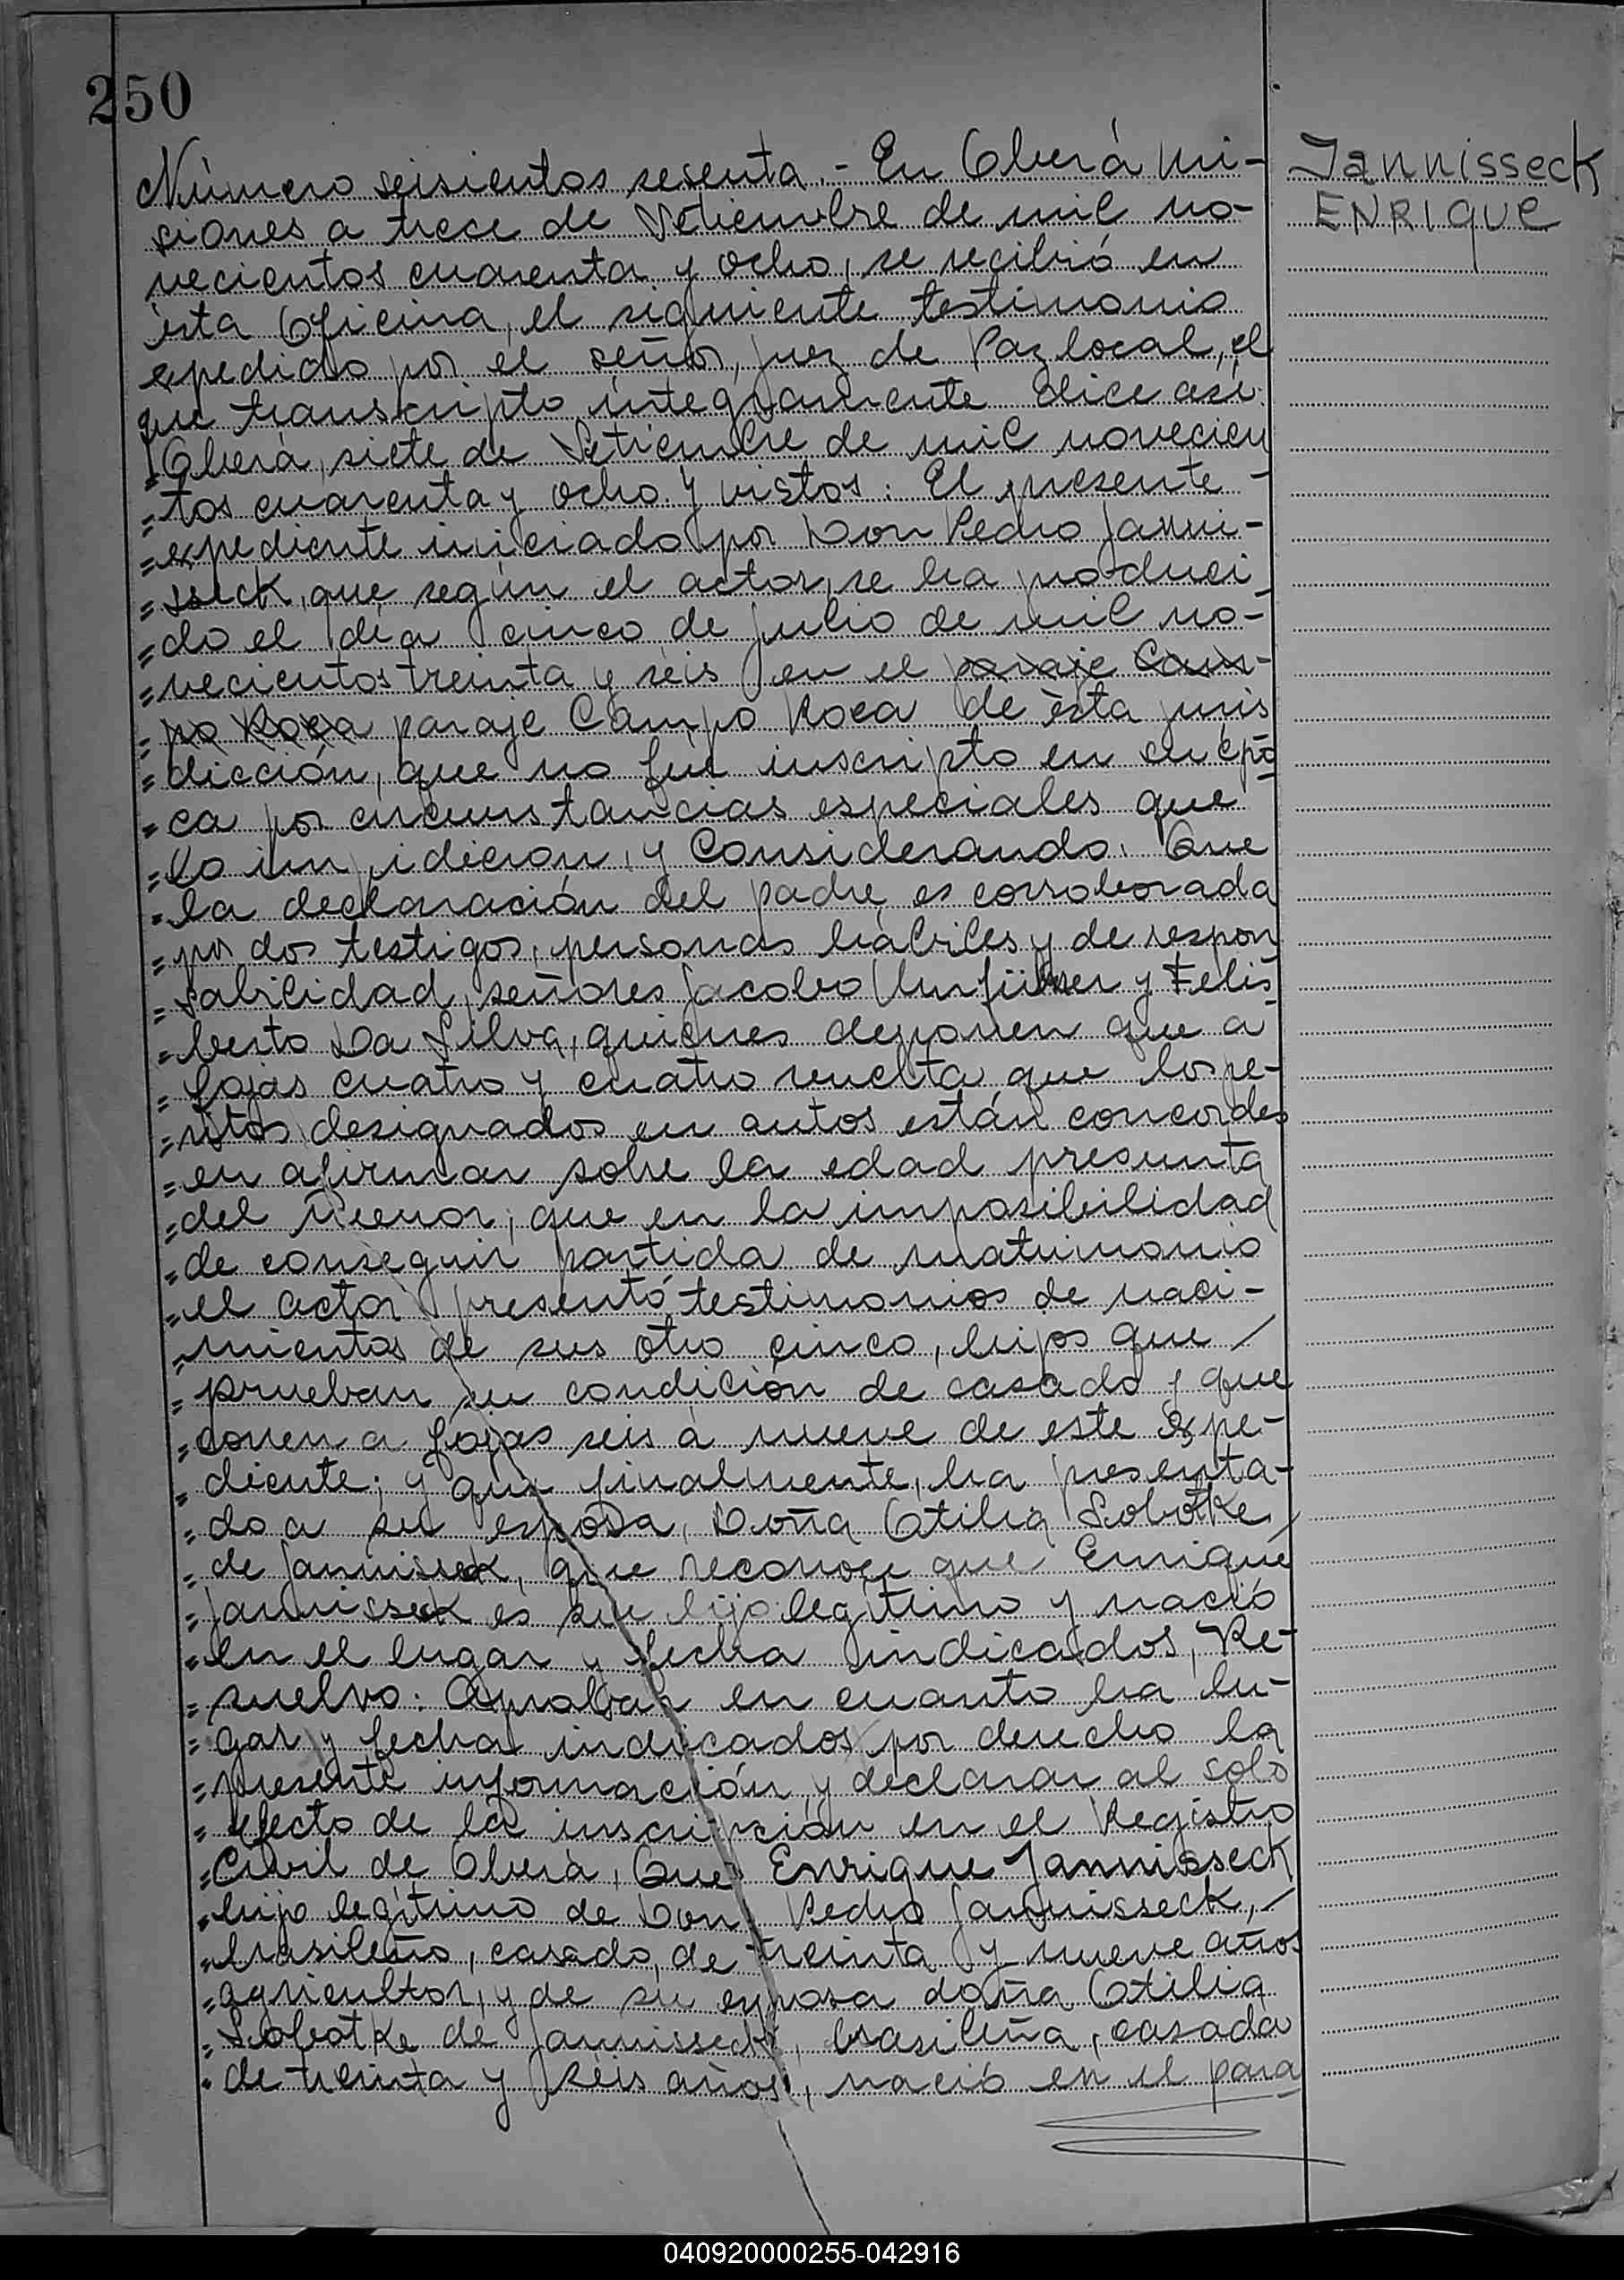 250
Jannisseck
ENRIQUE
Número seisientos sesenta.- En Oberá Mi-
siones a trece de Setiembre de mil no-
vecientos cuarenta y ocho, se recibió en
ésta Oficina, el siguiente testimonio
expedido por el señor, juez de Paz local, el
que transcripto íntegramente dice así:
"Oberá, siete de Setiembre de mil novecien
"tos cuarenta y ocho y vistos: El presente-
"expediente iniciado por Don Pedro Janni-
"sseck, que según el actor, se ha produci
"do el día cinco de julio de mil no-
"vecientos treinta y séis en el paraje Cam-
"po Roca paraje Campo Roca de ésta juris
"dicción, que no fué inscripto en su épo
"ca por circunstancias especiales que
"lo impidieron, y Considerando: Que
"la declaración del padre es corroborada
"por dos testigos, personas hábiles y de respon
"sabilidad, señores Jacobo y Felis
"berto Da Silva, quienes deponen que a
"fojas cuatro y cuatro vuelta que los pe-
"ritos designados en autos están concordes
"en afirmar sobre la edad presunta
"del menor; que en la imposibilidad
"de conseguir partida de matrimonio
"el actor presentó testimonios de naci-
"mientos de sus otro cinco, hijos que /
"prueban su condición de casado y que
"corren a fojas seis a nueve de este expe-
"diente; y que finalmente, ha presenta-
"do a su esposa, Doña Otilia Sobotke /
"de Jannisseck, que reconoce que Enrique
"Jannicseck es su hijo legítimo y nació
"en el lugar y fecha indicados, Re-
"suelvo: Aprobar en cuanto ha lu-
"gar y fecha indicados por derecho la
"presente información y declarar al solo
"efecto de la inscripción en el Registro
"Civil de Oberá, Que Enrique Jannisseck
"hijo legítimo de Don Pedro Jannisseck, -
"brasileño, casado, de treinta y nueve años
"agricultor, y de su esposa doña Otilia
"Sobotke de Jannisseck, brasileña, casada
"de treinta y séis años, nació en el para
040920000255-042916